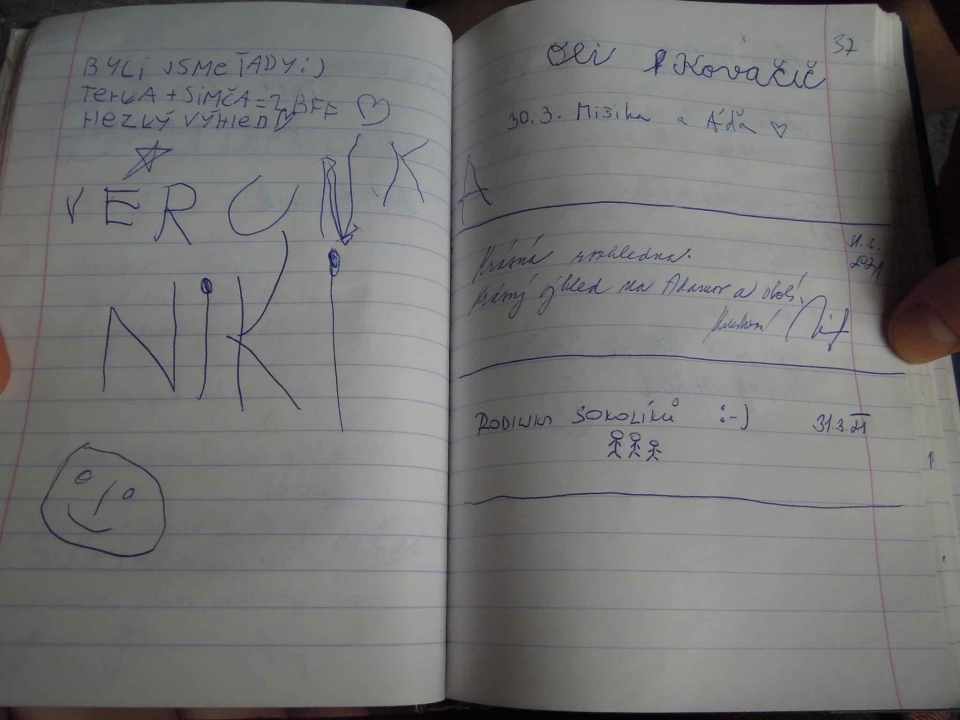 BYLI JSME TADY :)
TERKA + SIMČA = BFF ♡
HEZKÝ VÝHLED
VERUNKA
NIKI
37
Oli Kovačič
30. 3. Mišika a Áďa ♡
31. 3. 2021
Krásná rozhledna.
Krásný výhled na Adamov a okolí.
RODINKA SOKOLÍKŮ :-) 31.3.21